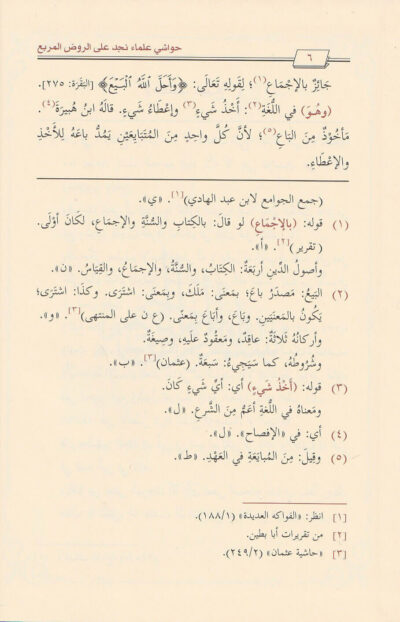 حواشي علماء نجد على الروض المربع
٦
جَائِزٌ بالإِجْمَاعِ(١)؛ لِقَولِهِ تَعَالَى: ﴿وَأَحَلَّ ٱللَّهُ ٱلْبَيْعَ﴾ [البَقَرَة: ٢٧٥].
(وهُوَ) في اللُّغَةِ(٢): أَخْذُ شَيءٍ(٣) وإعْطَاءُ شَيءٍ. قالَهُ ابنُ هُبيرَةَ(٤).
مَأخُوْذٌ مِنَ البَاعِ(٥)؛ لأنَّ كُلَّ واحِدٍ مِنَ المُتَبَايِعَيْنِ يَمُدُّ باعَهُ لِلأَخْذِ
والإِعْطَاءِ.
(جمع الجوامع لابن عبد الهادي)[١]. «ي».
(١) قوله: (بالإِجْمَاعِ) لو قالَ: بالكِتابِ والسُّنَّةِ والإجماعِ، لَكَانَ أَوْلَى.
(تقرير)[٢]. «أ».
وأصولُ الدِّينِ أربَعَةٌ: الكِتَابُ، والسُّنَّةُ، والإجماعُ، والقِيَاسُ. «ن».
(٢) البَيْعُ: مَصدَرُ باعَ؛ بمَعنَى: مَلَكَ، وبِمَعنَى: اشتَرَى. وكذا: اشتَرَى؛
يَكُونُ بالمَعنَيَينِ. وبَاعَ، وأبَاعَ بِمَعنًى. (ع ن على المنتهى)[٣]. «و».
وأركانُهُ ثَلاثَةٌ: عاقِدٌ، ومَعقُودٌ علَيهِ، وصِيغَةٌ.
وشُرُوطُهُ، كما سَيَجِيءُ: سَبعَةٌ. (عثمان)[٣]. «ب».
(٣) قوله: (أَخْذُ شَيءٍ) أي: أيِّ شَيءٍ كَانَ.
ومَعناهُ في اللُّغةِ أعَمُّ مِنَ الشَّرعِ. «ل».
(٤) أي: في «الإفصاح». «ل».
(٥) وقِيلَ: مِنَ المُبايَعَةِ في العَهْدِ. «ط».
[١] انظر: «الفواكه العديدة» (١/١٨٨).
[٢] من تقريرات أبا بطين.
[٣] «حاشية عثمان» (٢/٢٤٩).